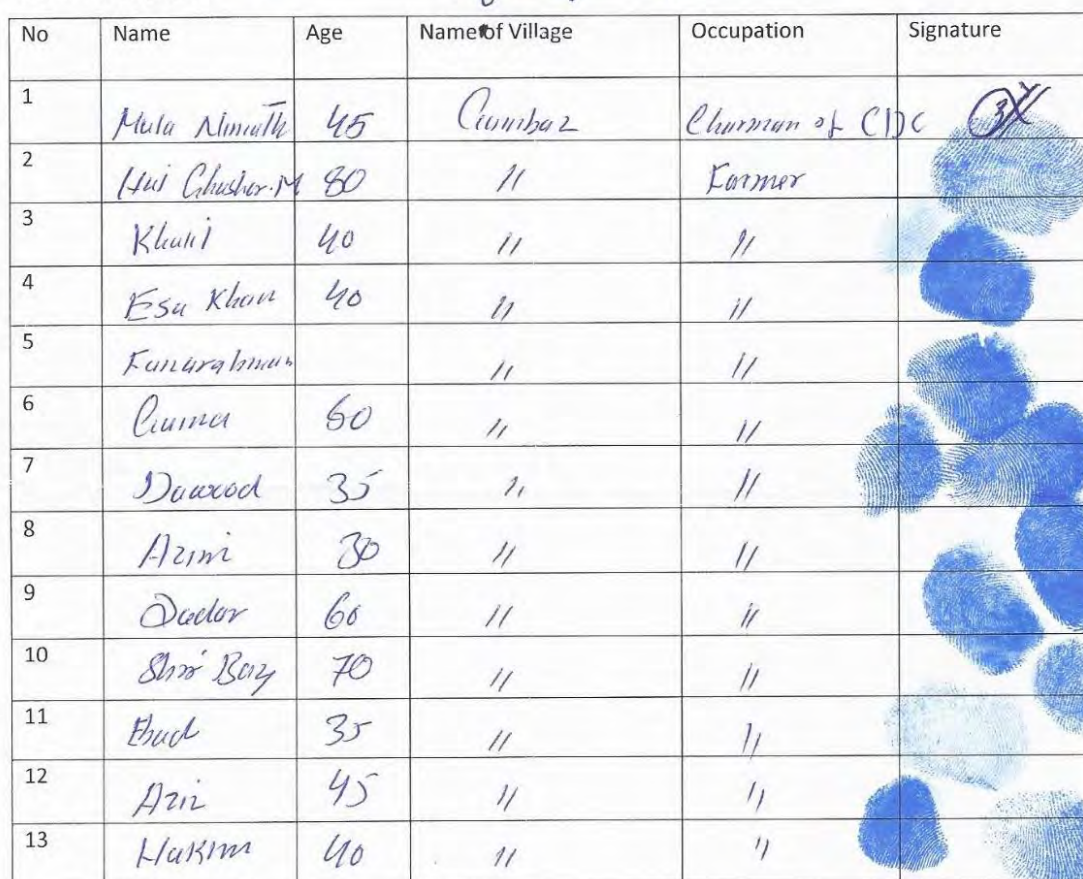 No Name Age Name of Village Occupation Signature
1 Mula Nimath 45 Gumbaz Charman of CDC
2 Haji 80 " Farmer
3 Khalil 40 " "
4 Esa Khan 40 " "
5 " "
6 Guma 60 " "
7 Dawood 35 " "
8 Azim 30 " "
9 Qadar 60 " "
10 Shir Baz 70 " "
11 Ebad 35 " "
12 Aziz 45 " "
13 Hakim 40 " "